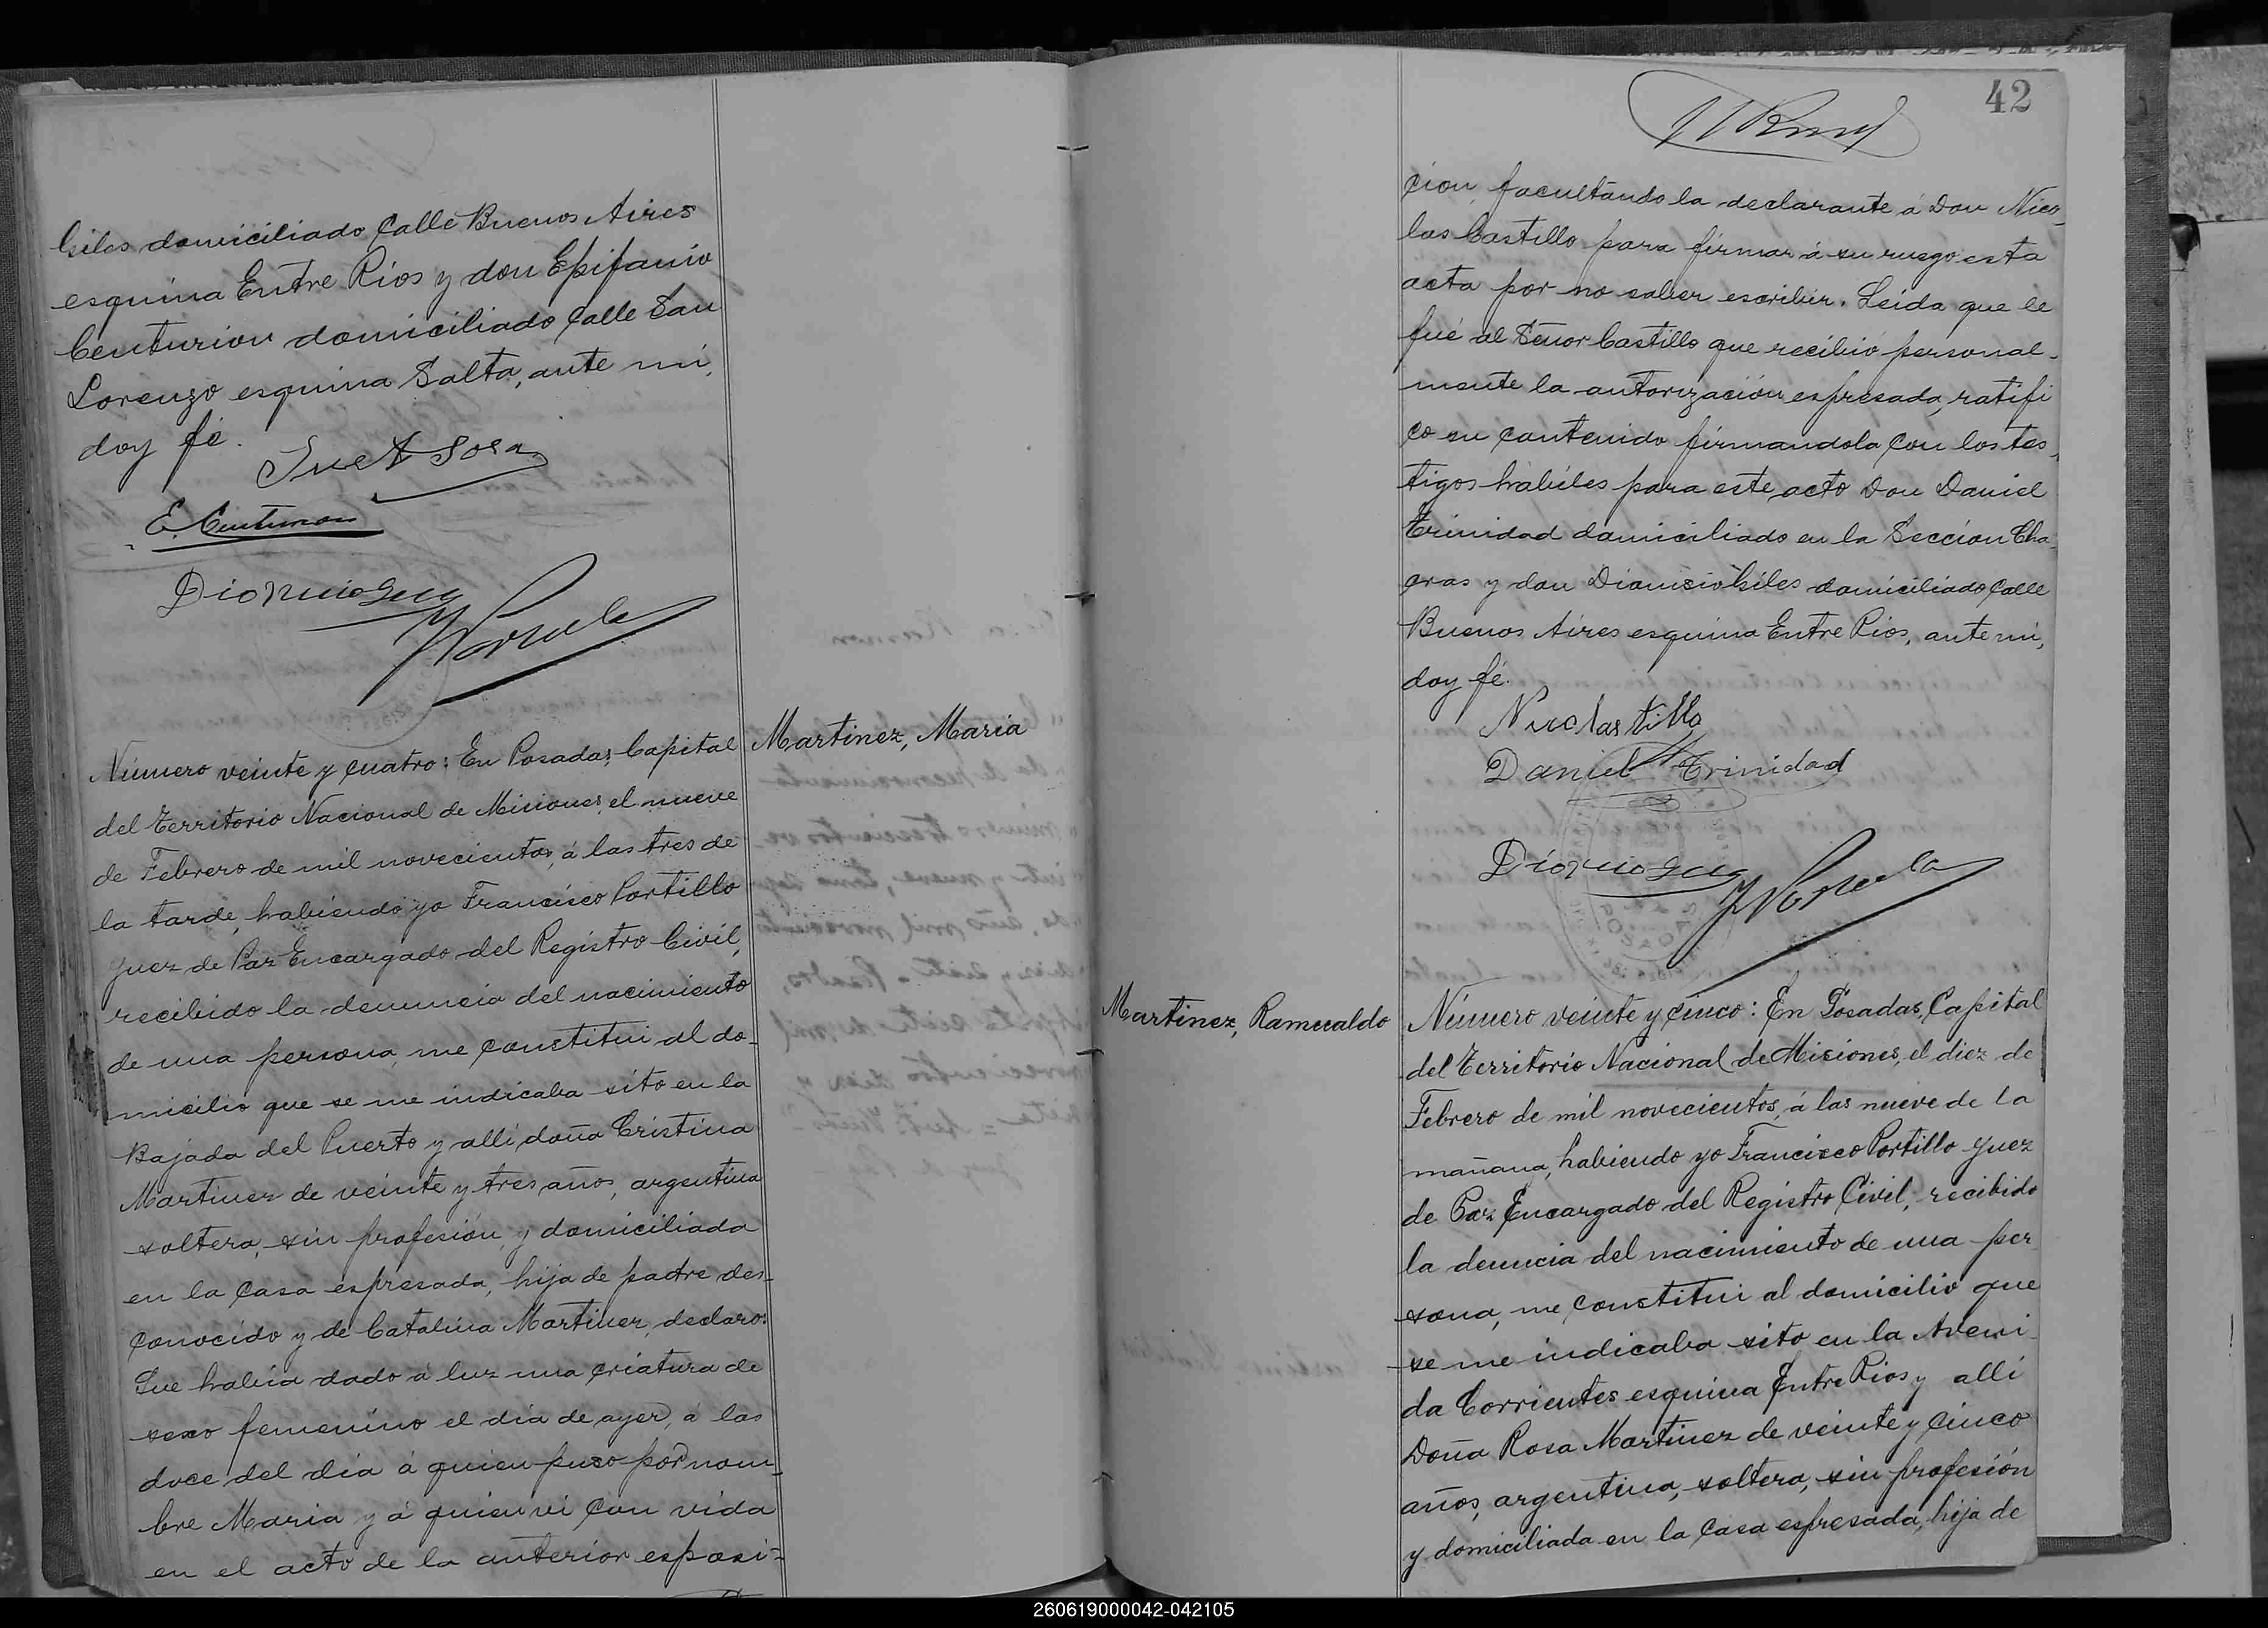 Giles domiciliado Calle Buenos Aires
esquina Entre Rios y don Epifanio
Centurion domiciliado Calle San
Lorenzo esquina Salta, ante mi,
doy fé.
Jue A Sosa
E. Centurion
Dionicio
Número veinte y cuatro: En Posadas, Capital
del Territorio Nacional de Misiones, el nueve
de Febrero de mil novecientos, á las tres de
la tarde, habiendo yo Francisco Portillo
Juez de Paz Encargado del Registro Civil,
recibido la denuncia del nacimiento
de una persona, me constitui al do-
micilio que se me indicaba sito en la
Bajada del Puerto y alli doña Cristina
Martinez de veinte y tres años, argentina
soltera, sin profesión, y domiciliada
en la casa espresada, hija de padre des-
conocido y de Catalina Martinez, declaro:
Que habia dado á luz una criatura de
sexo femenino el dia de ayer, á las
doce del dia á quien puso por nom-
bre Maria y á quien vi con vida
en el acto de la anterior esposi-
Martinez, Maria
42
cion, facultando la declarante á Don Nico-
las Castillo para firmar á su ruego esta
acta por no saber escribir. Leida que le
fué al Señor Castillo que recibió personal-
mente la autorización espresada, ratifi
co su contenido firmandola con los tes-
tigos habiles para este acto Don Daniel
Trinidad domiciliado en la Seccion Cha-
cras y don Dionisio Giles domiciliado Calle
Buenos Aires esquina Entre Rios, ante mi,
doy fé.
Nicolas tillo
Daniel Trinidad
Dionicio
Martinez, Ramualdo
Número veinte y cinco: En Posadas, Capital
del Territorio Nacional de Misiones, el diez de
Febrero de mil novecientos, á las nueve de la
mañana, habiendo yo Francisco Portillo Juez
de Paz Encargado del Registro Civil, recibido
la denuncia del nacimiento de una per
sona, me constitui al domicilio que
se me indicaba sito en la Aveni-
da Corrientes esquina Entre Rios y alli
Doña Rosa Martinez de veinte y cinco
años, argentina, soltera, sin profesión
y domiciliada en la casa espresada, hija de
260619000042-042105